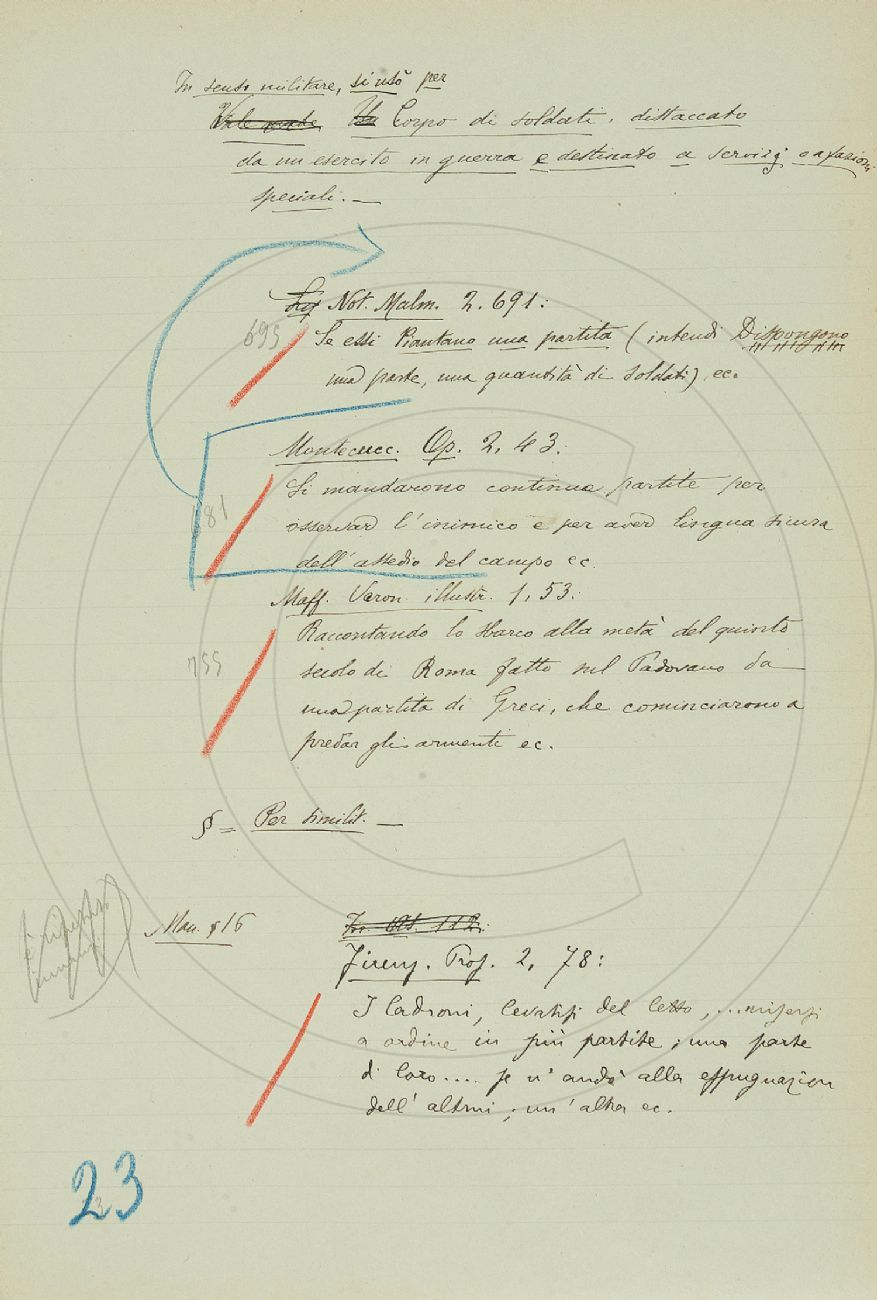 In senso militare, si usò per
Vale anche Un Corpo di soldati, distaccato
da un esercito in guerra e destinato a servizj o a fazioni
speciali. —
Not. Malm. 2. 691:
695
Se essi Piantano una partita (intendi Dispongono
una parte, una quantità di soldati), ec.
Montecucc. Op. 2, 43:
181
Si mandarono continue partite per
osservar l'inimico e per aver lingua sicura
dell'assedio del campo ec.
Maff. Veron. illustr. 1, 53:
755
Raccontando lo sbarco alla metà del quinto
secolo di Roma fatto sul Padovano da
una partita di Greci, che cominciarono a
predar gli armenti ec.
§ = Per similit. —
Man. § 16
112:
Firenz. Pros. 2, 78:
I ladroni, levatisi del letto, ... misersi
a ordine in più partite; una parte
di loro .... se n'andò alla espugnazion
dell'altrui; un'altra ec.
23